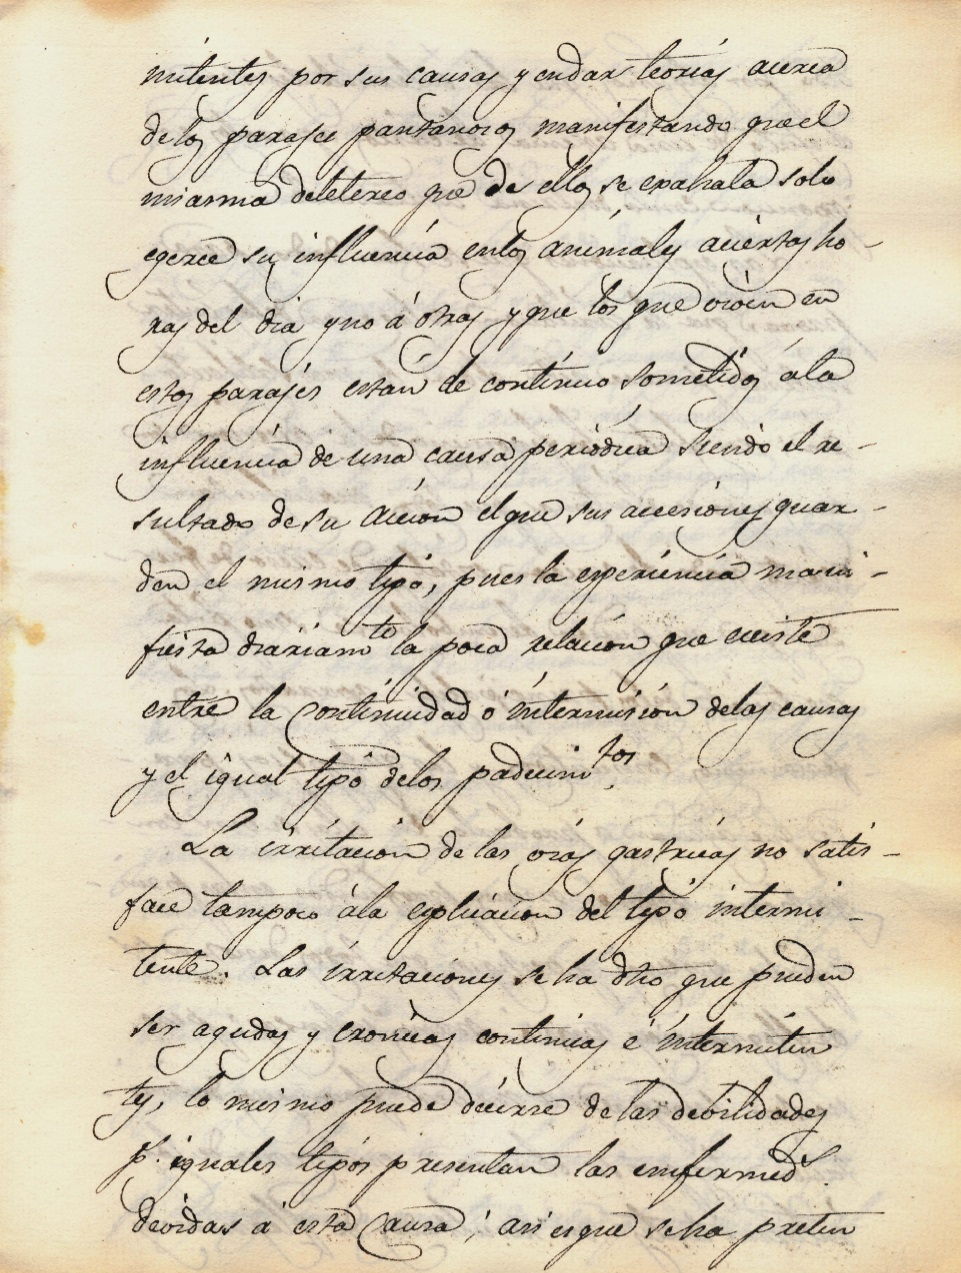 mitentes por sus causas y en dar teorias acerca
de los parajes pantanosos manifestando que el
miasma deletereo que de ellos se exahala solo
egerce su influencia en los animales aciertas ho-
ras del dia y no á otras y que los que viven en
estos parajes estan de continuo sometidos á la
influencia de una causa periódica siendo el re-
sultado de su accion el que sus accesiones guar-
den el mismo tipo, pues la esperiencia mani-
fiesta diariamte la poca relacion que existe
entre la continuidad ó intermision delas causas
y el igual tipo de los padecimtos.
La irritacion de las vias gastricas no satis-
face tampoco ála esplicacion del tipo intermi-
tente. Las irritaciones se ha dho que pueden
ser agudas y cronicas continuas é intermiten
tes, lo mismo puede decirse de las debilidades
pr. iguales tipos presentan las enfermeds.
devidas a esta causa; asi es que se ha preten